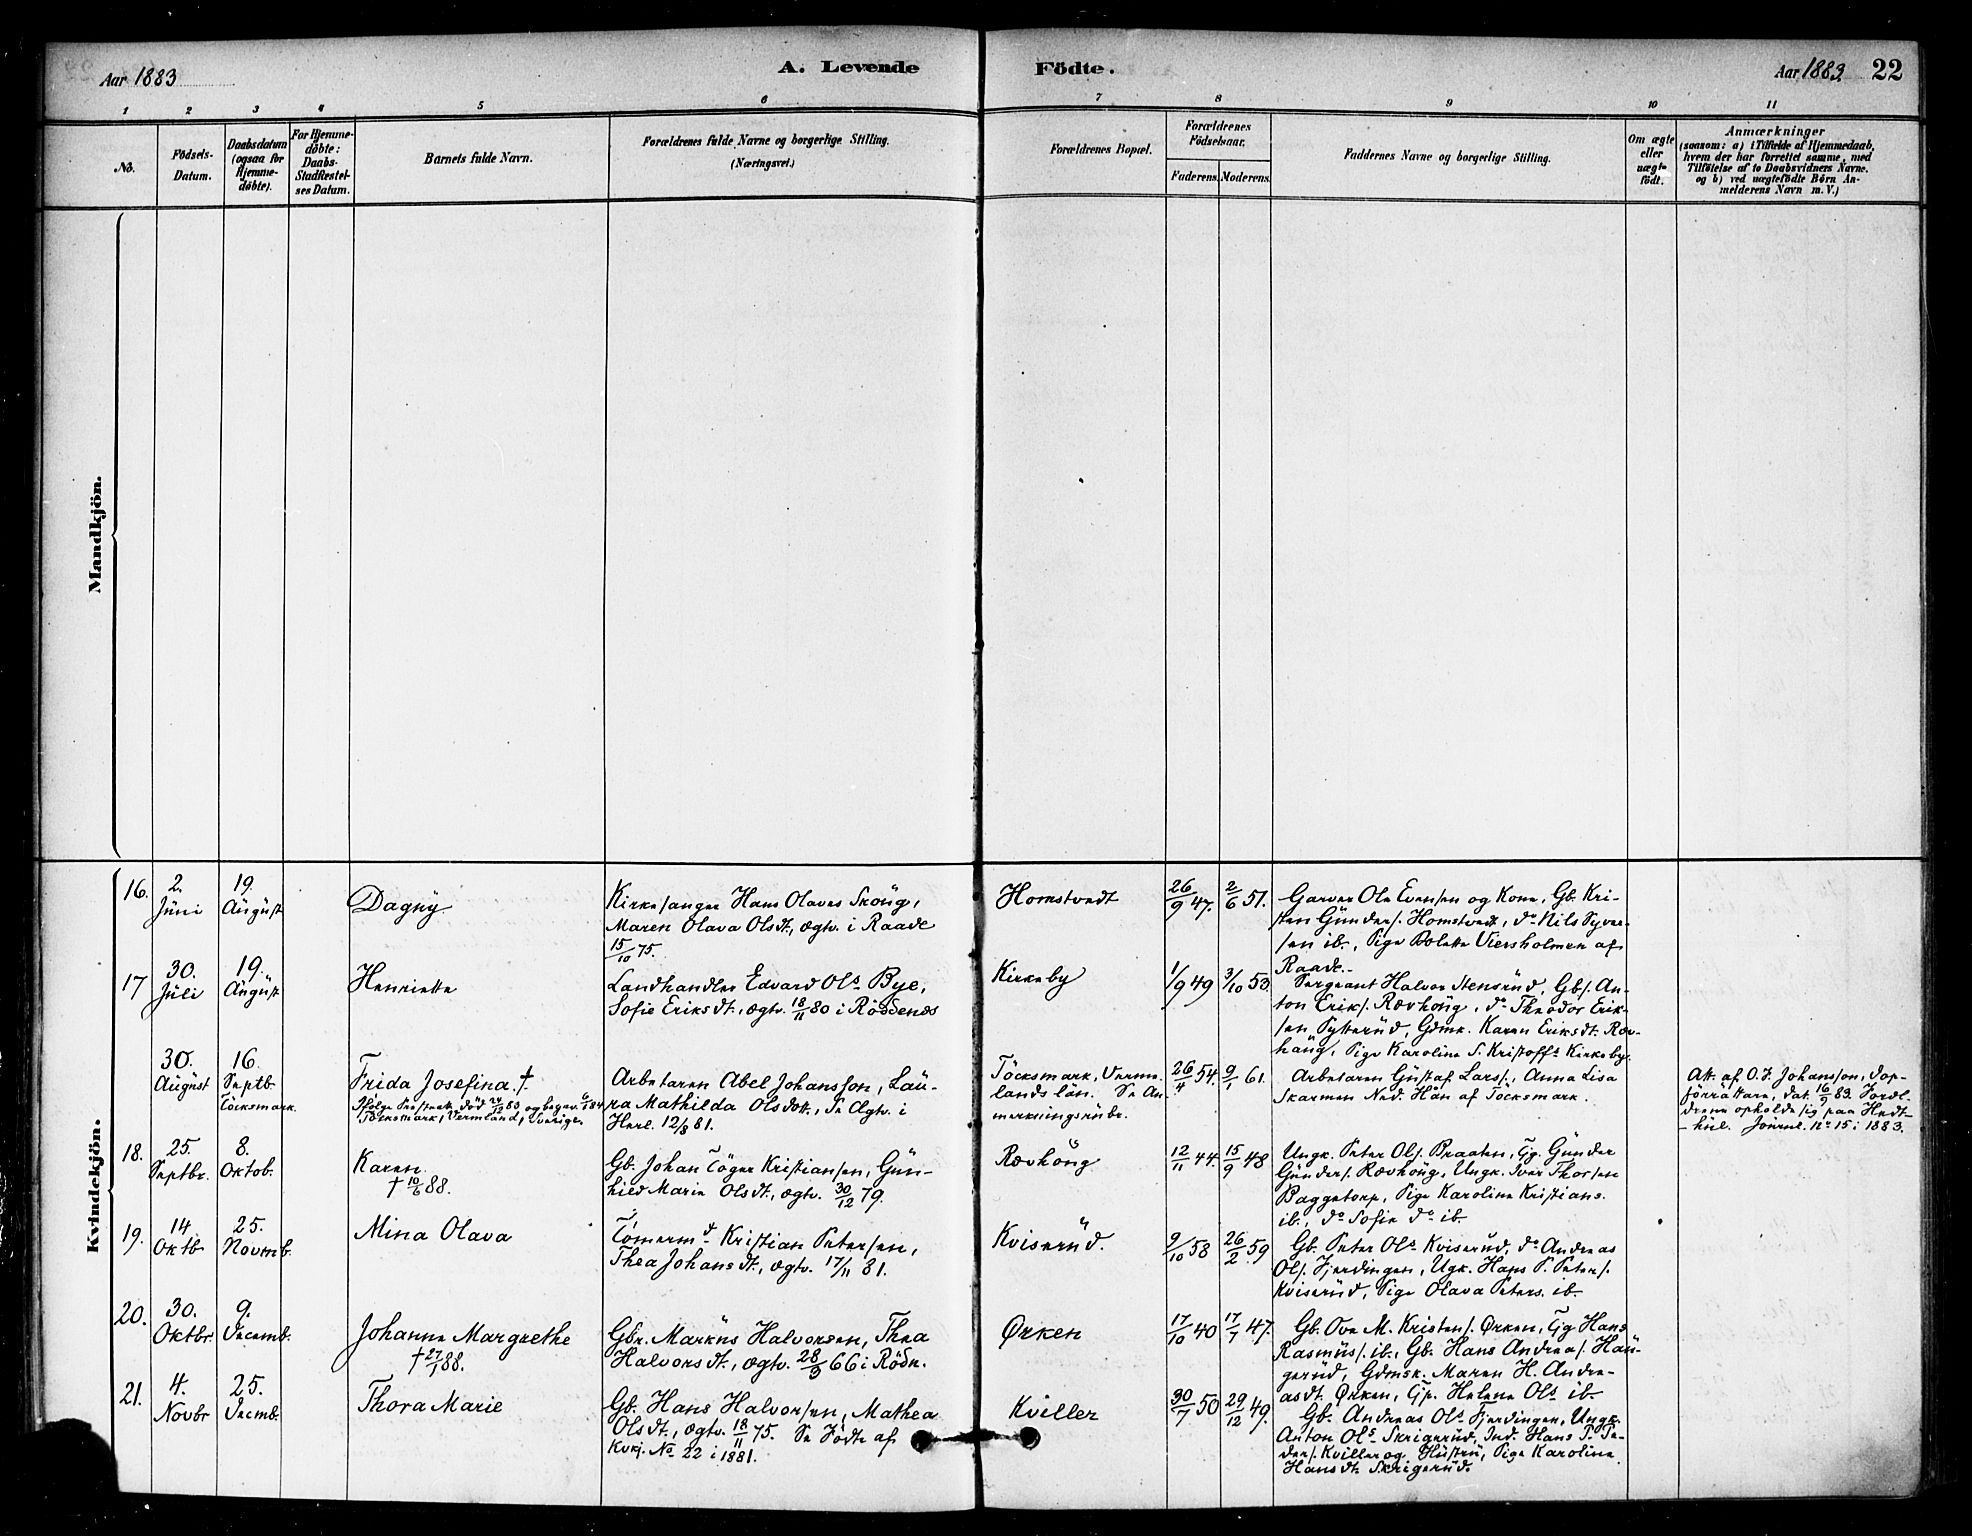 Aar 1883
A. Levende
Födte.
Aar 1883. 22
1 2 3 4 5 6 7 8 9 10 11
No.
Födsels-
Datum.
Daabsdatum
(ogsaa for
Hjemme-
döbte).
For Hjemme-
döbte:
Daabs-
Stadfæstel-
ses Datum.
Barnets fulde Navn.
Forældrenes fulde Navne og borgerlige Stilling.
(Næringsvei.)
Forældrenes Bopæl.
Forældrenes
Födselsaar.
Faderens. Moderens.
Faddernes Navne og borgerlige Stilling.
Om ægte
eller
uægte
födt.
Anmærkninger
(saasom: a) i Tilfælde af Hjemmedaab,
hvem der har forrettet samme, med
Tilföielse af to Daabsvidners Navne.
og b) ved uægtefödte Börn An-
melderens Navn m. V.)
Mandkjön.
Kvindekjön.
16. 2. Juni
19. August
Dagny
Kirkesanger Hans Olaves Skoug,
Maren Olava Olsdt., ægtv. i Raade
15/10 75.
Homstvedt
26/9 47. 2/6 51.
Garver Ole Evensen og Kone, Gb. Kri-
sten Gunders. Homstvedt, do Nils Syver-
sen ib., Pige Bolette Viersholmen af
Raade.
17 30. Juli
19. August
Henriette
Landhandler Edvard Ols. Bye,
Sofie Eriksdt., ægtv. 18/11 80 i Röddenæs
Kirkeby
1/9 49 3/10 53.
Sergeant Halvor Stensrud, Gbs. An-
ton Eriks. Rævhoug, do Theodor Erik-
sen Sytterud, Gdmk. Karen Eriksdt. Ræv-
haug, Pige Karoline S. Kristoffs. Kirkeby.
30. August
16. Septb. Töcksmark.
Frida Josefina. †
Ifölge Præsteatt. död 24/12 83 og begrav. 6/1 84
Töcksmark, Vermland, Sverige.
Arbetaren Abel Johansson, Lau-
ra Mathilda Olsdott., Se Ægtv. i
Herl. 12/8 81.
Töcksmark, Verm-
lands län. Se An-
merkningsrubr.
26/4 54. 9/1 61.
Arbetaren Gustaf Larss., Anna Lisa
Skarmen Ned. Hän af Töcksmark.
Att. af O. J. Johansson, Dop-
förrättare, dat. 16/9 83. Foræl-
drene opholde sig paa Hedt-
Journl. No 15 i 1883.
18. 25. Septbr.
8. Oktob.
Karen
† 10/6 88.
Gb. Johan Töger Kristiansen, Gun-
hild Marie Olsdt., ægtv. 30/12 79.
Rævhoug
12/11 44. 15/9 48
Ungk. Peter Ols. Braaten, Gg. Gunder
Gunders. Rævhoug, Ungk. Iver Thorsen
Baggetorp, Pige Karoline Kristians.
ib., do Sofie do ib.
19. 14. Oktb.
25. Novemb.
Mina Olava
Tömermd. Kristian Petersen,
Thea Johansdt., ægtv. 17/11 81.
Kviserud.
9/10 58 26/2 59
Gb. Peter Ols. Kviserud, do Andreas
Ols. Fjerdingen, Ugk. Hans P. Peters.
Kviserud, Pige Olava Peters. ib.
20. 30. Oktbr.
9. Decemb.
Johanne Margrethe
† 27/1 88.
Gbr. Markus Halvorsen, Thea
Halvorsdt., ægtv. 28/3 66 i Rödn.
Ørken
17/10 40 17/7 47.
Gb. Ove M. Kristens. Ørken, Gg Hans
Rasmus. ib., Gb. Hans Andreas. Hau-
gerud, Gdmsk. Maren H. Andre-
asdt. Ørken, Gp. Helene Ols. ib.
21. 4. Novbr
25. Decemb.
Thora Marie
Gb. Hans Halvorsen, Mathea
Olsdt., ægtv. 18/11 75. Se Födte af
Kvkj. No 22 i 1881.
Kviller
30/7 50 29/12 49.
Gb. Andreas Ols. Fjerdingen, Ungk.
Anton Ols. Skrigerud, Ind. Hans P. Pe-
ders. Kviller og Hustru, Pige Karoline
Hansdt. Skrigerud.